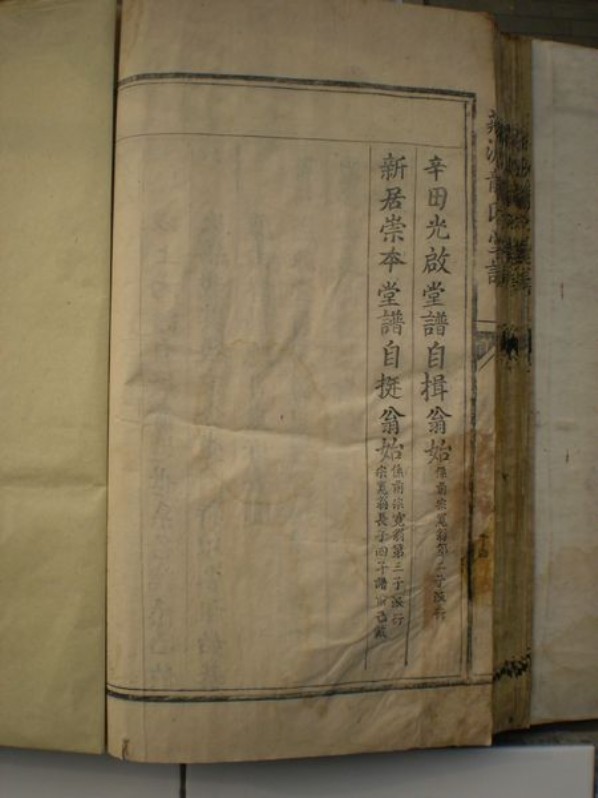 辛田光啟堂譜自揖翁始係前宗寬翁第二子派行
新居崇本堂譜自挺翁始係前宗寬翁第三子派行
宗寬翁長子四子譜前已載
龍氏宗譜